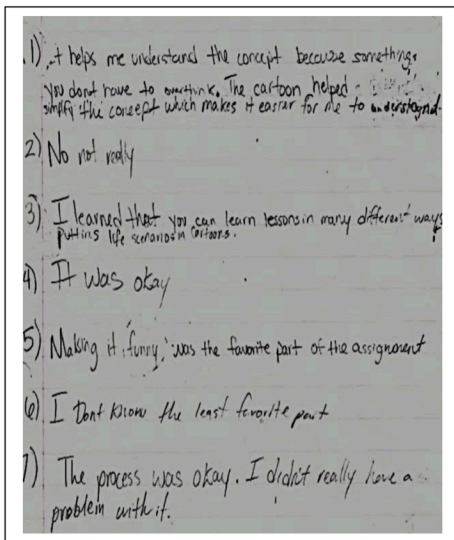 1) It helps me understand the concept because somethings
you dont have to overthink. The cartoon helped
simplify the concept which makes it easier for me to understagnd.
2) No not really
3) I learned that you can learn lessons in many different ways
putting life scenarios in cartoons.
4) It was okay
5) Making it funny, was the favorite part of the assignment
6) I Dont know the least favorite part
7) The process was okay. I didn't really have a
problem with it.